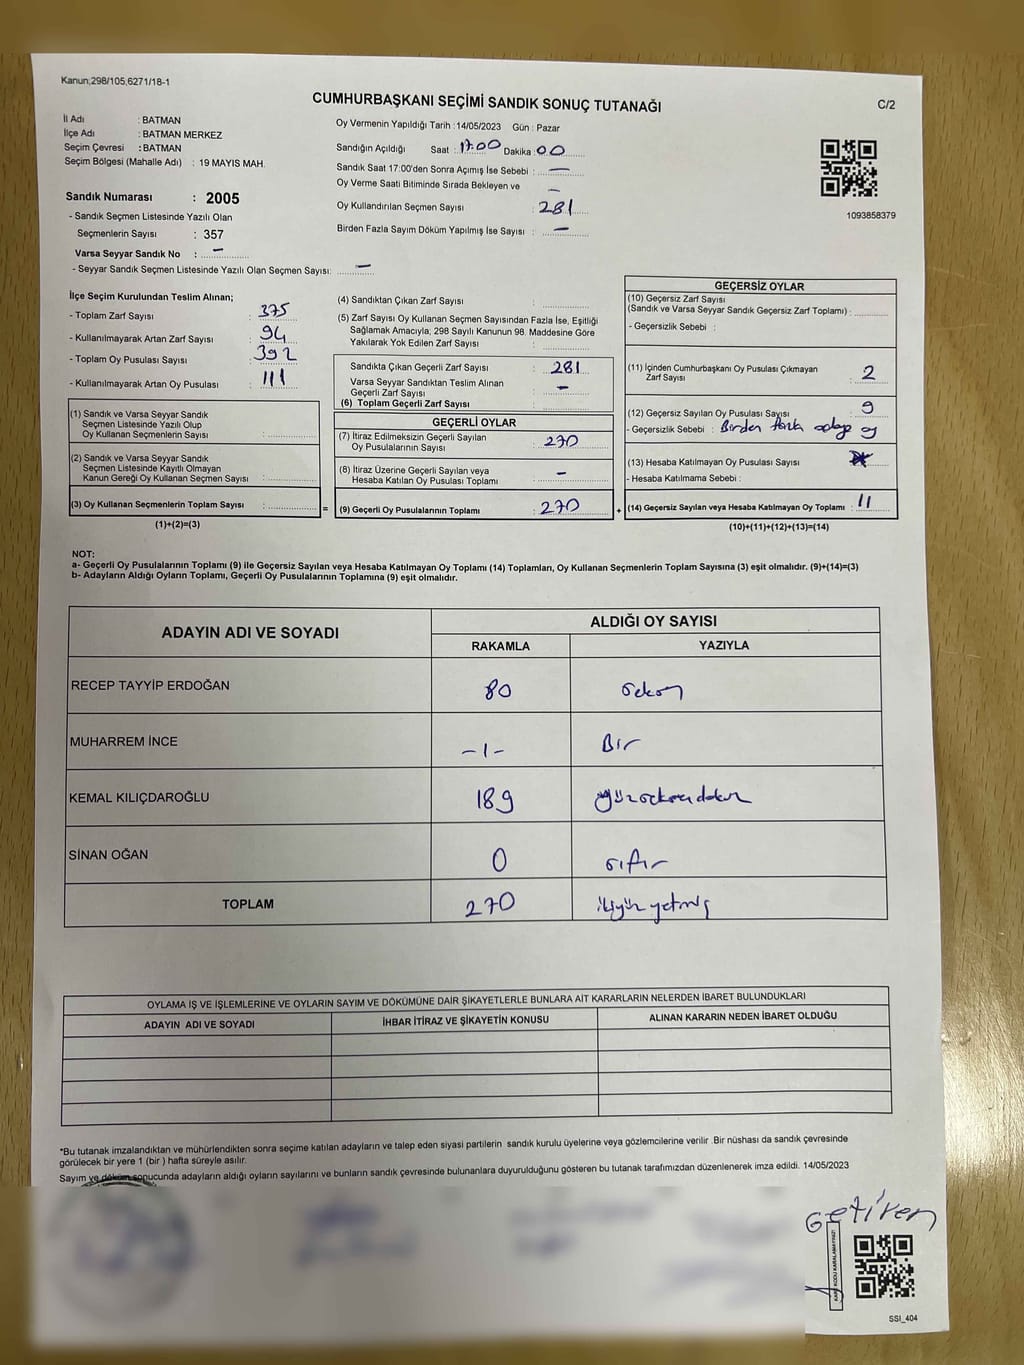 Kanun;298/105,6271/18-1
CUMHURBAŞKANI SEÇİMİ SANDIK SONUÇ TUTANAĞI
C/2
İl Adı : BATMAN
İlçe Adı : BATMAN MERKEZ
Seçim Çevresi : BATMAN
Seçim Bölgesi (Mahalle Adı) : 19 MAYIS MAH.
Sandık Numarası : 2005
- Sandık Seçmen Listesinde Yazılı Olan
Seçmenlerin Sayısı : 357
Varsa Seyyar Sandık No : –
- Seyyar Sandık Seçmen Listesinde Yazılı Olan Seçmen Sayısı: –
Oy Vermenin Yapıldığı Tarih :14/05/2023 Gün : Pazar
Sandığın Açıldığı Saat : 17:00 Dakika : 00
Sandık Saat 17:00'den Sonra Açımış İse Sebebi : –
Oy Verme Saati Bitiminde Sırada Bekleyen ve –
Oy Kullandırılan Seçmen Sayısı : 281
Birden Fazla Sayım Döküm Yapılmış İse Sayısı : –
1093858379
İlçe Seçim Kurulundan Teslim Alınan;
- Toplam Zarf Sayısı : 375
- Kullanılmayarak Artan Zarf Sayısı : 94
- Toplam Oy Pusulası Sayısı : 392
- Kullanılmayarak Artan Oy Pusulası : 111
(1) Sandık ve Varsa Seyyar Sandık
Seçmen Listesinde Yazılı Olup
Oy Kullanan Seçmenlerin Sayısı :
(2) Sandık ve Varsa Seyyar Sandık
Seçmen Listesinde Kayıtlı Olmayan
Kanun Gereği Oy Kullanan Seçmen Sayısı :
(3) Oy Kullanan Seçmenlerin Toplam Sayısı : =
(1)+(2)=(3)
(4) Sandıktan Çıkan Zarf Sayısı :
(5) Zarf Sayısı Oy Kullanan Seçmen Sayısından Fazla İse, Eşitliği
Sağlamak Amacıyla; 298 Sayılı Kanunun 98. Maddesine Göre
Yakılarak Yok Edilen Zarf Sayısı :
Sandıkta Çıkan Geçerli Zarf Sayısı : 281
Varsa Seyyar Sandıktan Teslim Alınan
Geçerli Zarf Sayısı : –
(6) Toplam Geçerli Zarf Sayısı :
GEÇERLİ OYLAR
(7) İtiraz Edilmeksizin Geçerli Sayılan
Oy Pusulalarının Sayısı : 270
(8) İtiraz Üzerine Geçerli Sayılan veya
Hesaba Katılan Oy Pusulası Toplamı : –
(9) Geçerli Oy Pusulalarının Toplamı : 270 +
GEÇERSİZ OYLAR
(10) Geçersiz Zarf Sayısı
(Sandık ve Varsa Seyyar Sandık Geçersiz Zarf Toplamı) :
- Geçersizlik Sebebi :
(11) İçinden Cumhurbaşkanı Oy Pusulası Çıkmayan
Zarf Sayısı : 2
(12) Geçersiz Sayılan Oy Pusulası Sayısı : 9
- Geçersizlik Sebebi : Birden fazla adaya oy
(13) Hesaba Katılmayan Oy Pusulası Sayısı :
- Hesaba Katılmama Sebebi :
(14) Geçersiz Sayılan veya Hesaba Katılmayan Oy Toplamı : 11
(10)+(11)+(12)+(13)=(14)
NOT:
a- Geçerli Oy Pusulalarının Toplamı (9) ile Geçersiz Sayılan veya Hesaba Katılmayan Oy Toplamı (14) Toplamları, Oy Kullanan Seçmenlerin Toplam Sayısına (3) eşit olmalıdır. (9)+(14)=(3)
b- Adayların Aldığı Oyların Toplamı, Geçerli Oy Pusulalarının Toplamına (9) eşit olmalıdır.
ADAYIN ADI VE SOYADI ALDIĞI OY SAYISI
RAKAMLA YAZIYLA
RECEP TAYYİP ERDOĞAN 80 seksen
MUHARREM İNCE -1- Bir
KEMAL KILIÇDAROĞLU 189 yüzseksendokuz
SİNAN OĞAN 0 sıfır
TOPLAM 270 ikiyüz yetmiş
OYLAMA İŞ VE İŞLEMLERİNE VE OYLARIN SAYIM VE DÖKÜMÜNE DAİR ŞİKAYETLERLE BUNLARA AİT KARARLARIN NELERDEN İBARET BULUNDUKLARI
ADAYIN ADI VE SOYADI İHBAR İTİRAZ VE ŞİKAYETİN KONUSU ALINAN KARARIN NEDEN İBARET OLDUĞU
*Bu tutanak imzalandıktan ve mühürlendikten sonra seçime katılan adayların ve talep eden siyasi partilerin sandık kurulu üyelerine veya gözlemcilerine verilir .Bir nüshası da sandık çevresinde
görülecek bir yere 1 (bir ) hafta süreyle asılır.
Sayım ve döküm sonucunda adayların aldığı oyların sayılarını ve bunların sandık çevresinde bulunanlara duyurulduğunu gösteren bu tutanak tarafımızdan düzenlenerek imza edildi. 14/05/2023
Getiren
KARE KODU KARALAMAYINIZ!
SSI_404